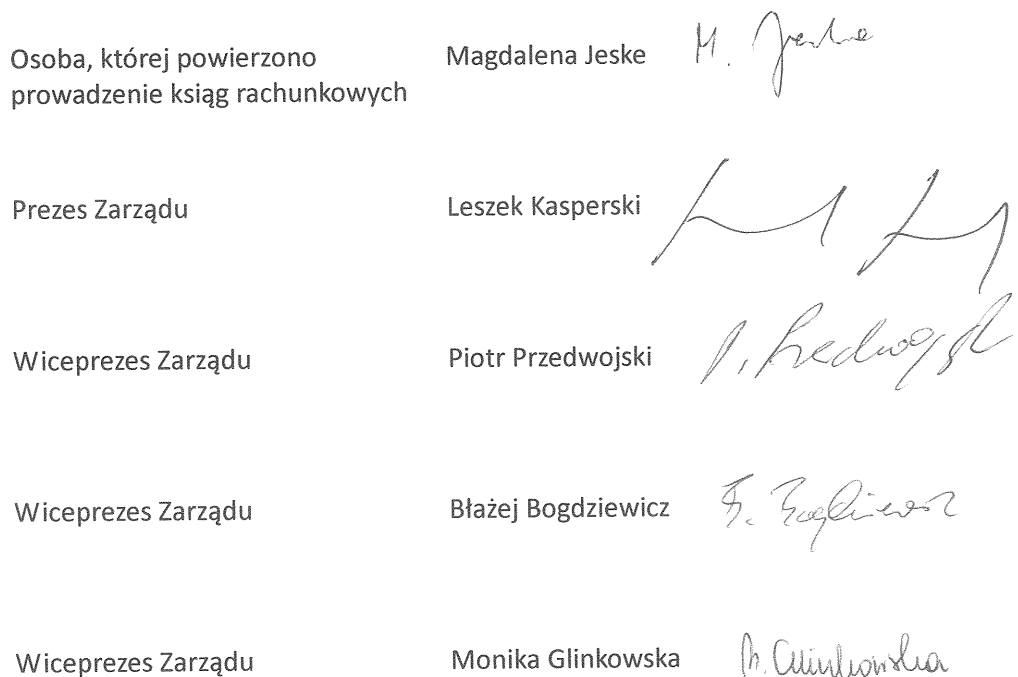 Osoba, której powierzono Magdalena Jeske M. Jeske
prowadzenie ksiąg rachunkowych
Prezes Zarządu Leszek Kasperski
Wiceprezes Zarządu Piotr Przedwojski P. Przedwojski
Wiceprezes Zarządu Błażej Bogdziewicz B. Bogdziewicz
Wiceprezes Zarządu Monika Glinkowska M. Glinkowska